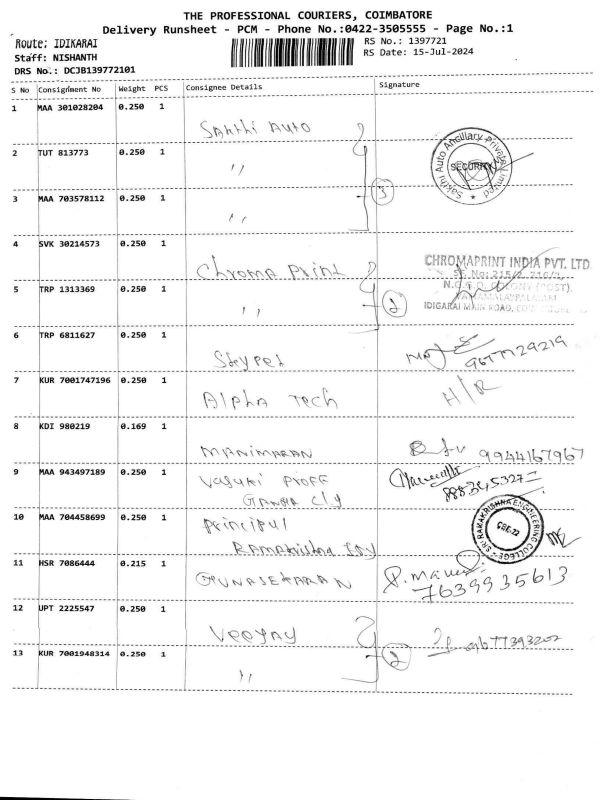 THE PROFESSIONAL COURIERS, COIMBATORE
Delivery Runsheet - PCM - Phone No.:0422-3505555 - Page No.:1
Route: IDIKARAI
RS No.: 1397721
Staff: NISHANTH
RS Date: 15-Jul-2024
DRS No.: DCJB139772101
S No Consignment No Weight PCS Consignee Details Signature
1 MAA 301028204 0.250 1
Sakthi Auto
2 TUT 813773 0.250 1
,,
Sakthi Auto Ancillary Private Limited
SECURITY
3 MAA 703578112 0.250 1
,,
3
4 SVK 30214573 0.250 1
Chroma Print
CHROMAPRINT INDIA PVT. LTD
5 TRP 1313369 0.250 1
,,
2
N.G.G.O. COLONY (POST),
IDIGARAI MAIN ROAD,
6 TRP 6811627 0.250 1
9677729219
7 KUR 7001747196 0.250 1
Alpha Tech
H/R
8 KDI 980219 0.169 1
MANIMARAN
9944167967
9 MAA 943497189 0.250 1
10 MAA 704458699 0.250 1
Principal
SRI RAMAKRISHNA ENGINEERING COLLEGE
CBE-22
11 HSR 7086444 0.215 1
GUNASEKARAN
7639935613
12 UPT 2225547 0.250 1
Veejay
9677393202
13 KUR 7001948314 0.250 1
,,
2